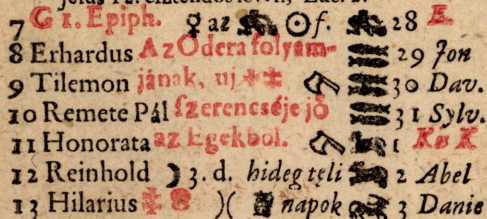 7 G 1. Epiph. ♀ az ☉ f. 28 E
8 Erhardus Az Odera folyam- 29 Jon
9 Tilemon jának, uj 30 Dav.
10 Remete Pál szerencséje jő 31 Sylv.
11 Honorata az Egekbol. 1 K
12 Reinhold ☽ 3. d. hideg teli 2 Abel
13 Hilarius )( napok 3 Danie